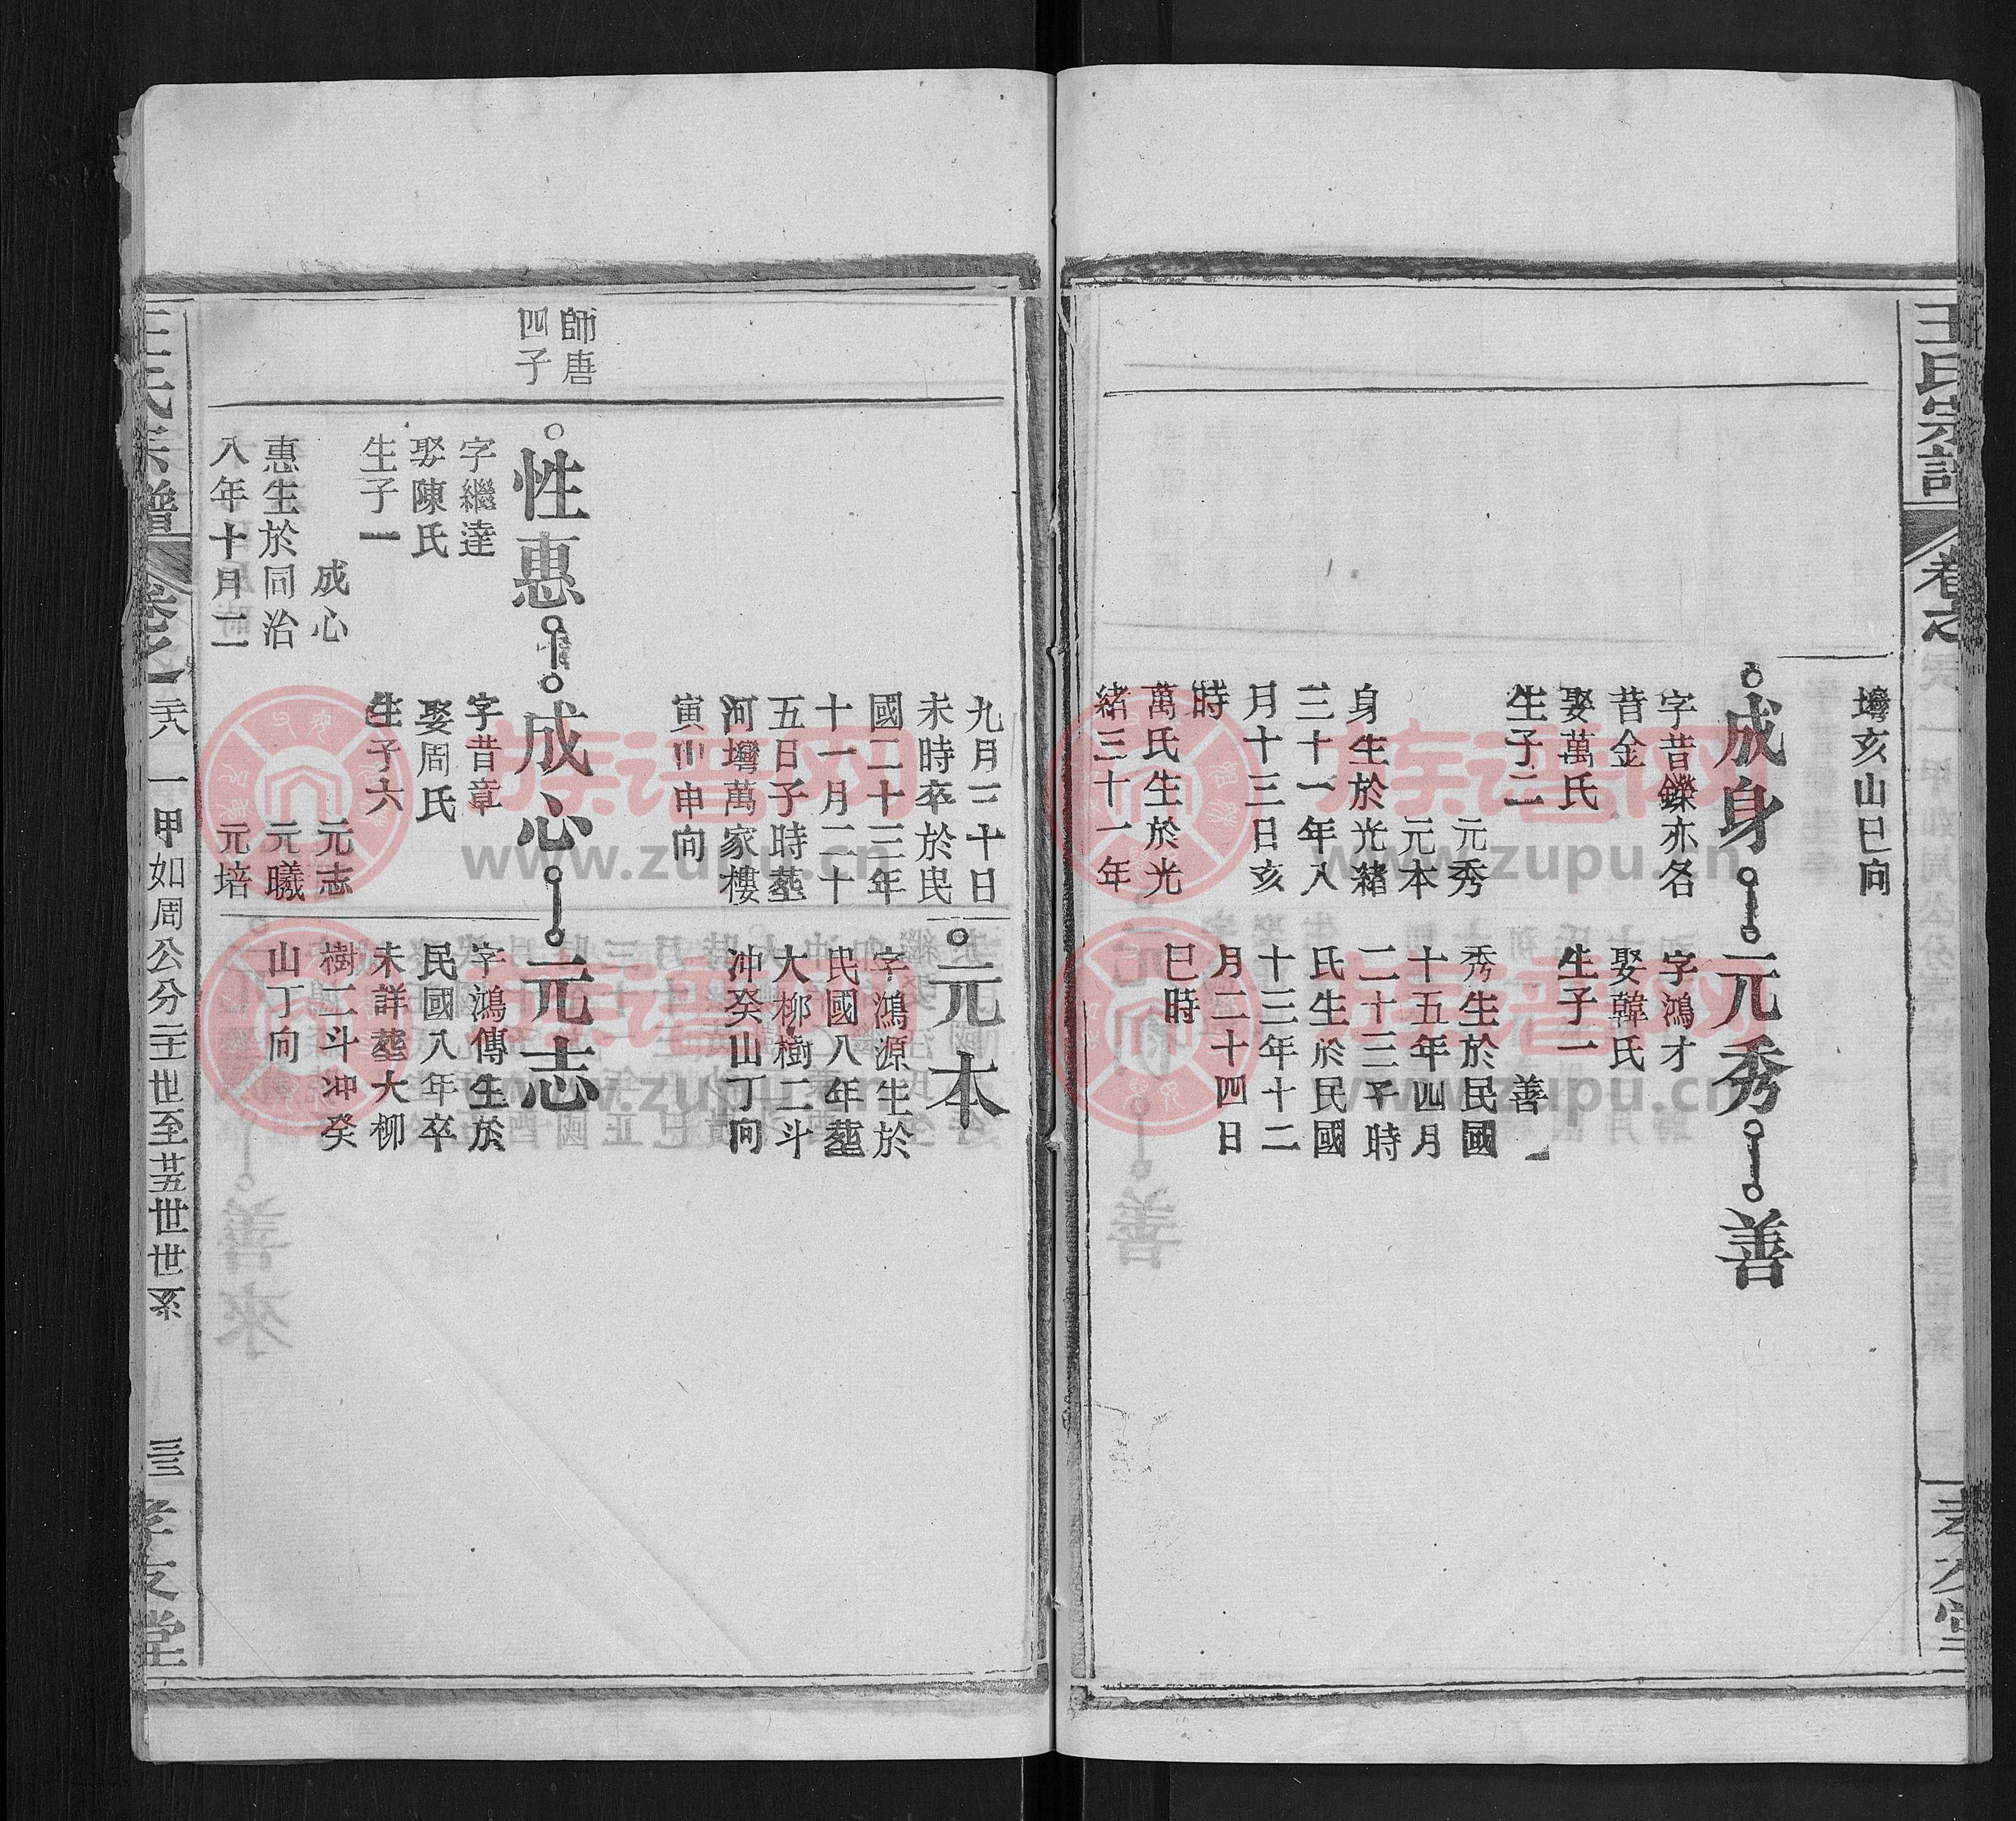 王氏宗譜
孝友堂
壪亥山巳向
成身
元秀
善
字昔鑠亦名
昔金
娶萬氏
生子二
元秀
元本
身生於光緒
三十一年八
月十三日亥
時
萬氏生於光
緒三十一年
字鴻才
娶韓氏
生子一
善
秀生於民國
十五年四月
二十三子時
氏生於民國
十三年十二
月二十四日
巳時
九月二十日
未時卒於民
國二十三年
十一月二十
五日子時塟
河壪萬家樓
寅山申向
元本
字鴻源生於
民國八年塟
大柳樹二斗
冲癸山丁向
師唐
四子
性惠
成心
元志
字繼達
娶陳氏
生子一
成心
惠生於同治
八年十月二
字昔章
娶周氏
生子六
元志
元曦
元培
字鴻傳生於
民國八年卒
未詳塟大柳
樹二斗冲癸
山丁向
王氏宗譜
一甲如周公分二十世至廿五世世系
三三
孝友堂
族谱网
www.zupu.cn
族谱网
www.zupu.cn
族谱网
www.zupu.cn
族谱网
www.zupu.cn